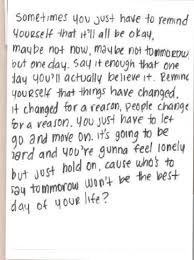 Sometimes you just have to remind
yourself that it'll all be okay,
maybe not now, maybe not tommorow,
but one day. Say it enough that one
day you'll actually believe it. Remind
yourself that things have changed,
it changed for a reason, people change
for a reason. You just have to let
go and move on. it's going to be
hard and you're gunna feel lonely
but just hold on, cause who's to
say tommorow won't be the best
day of your life?